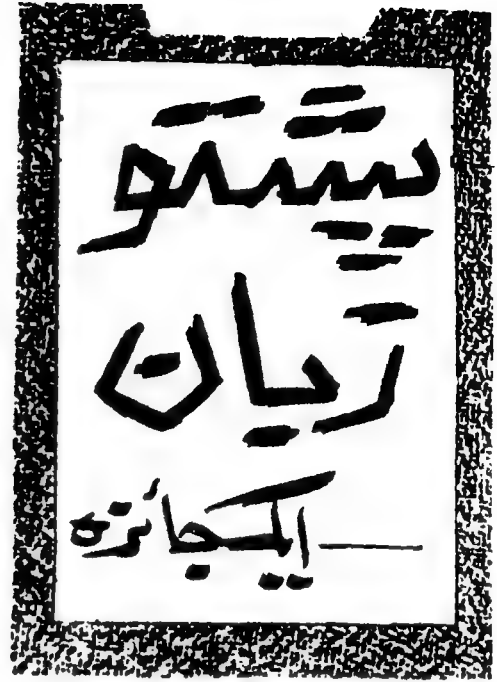 پشتو
زبان
ایک جائزہ